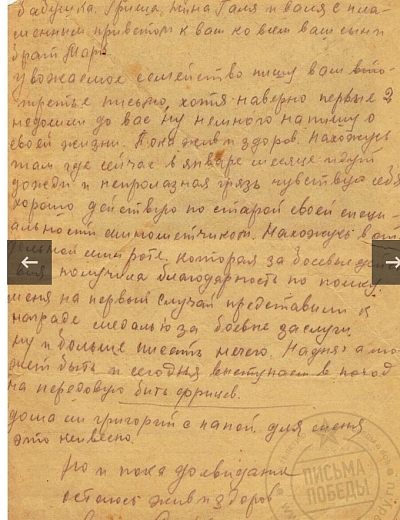 бабушка, Гриша, Нина Галя и Валя с пла-
менным приветом к вам ко всем ваш сын и
брат Марк.
уважаемое семейство пишу вам
третье письмо, хотя наверно первые 2
недошли до вас ну немного напишу о
своей жизни. Пока жив и здоров. Нахожусь
там где сейчас в январе месяце идут
дожди и непролазная грязь чувствую себя
хорошо действую по старой своей специ-
альности минометчиком. Нахожусь в
роте, которая за боевые
получила благодарность по полку.
меня на первый случай представили к
награде медалью за боевые заслуги.
ну и больше писать нечего. На днях а мо-
жет быть и сегодня выступаем в поход
на передовую бить фрицев.
дома ли григорий с папой, для меня
это неивесно.
Но и пока досвидания
остаюсь жив и здоров
ПИСЬМА
ПОБЕДЫ